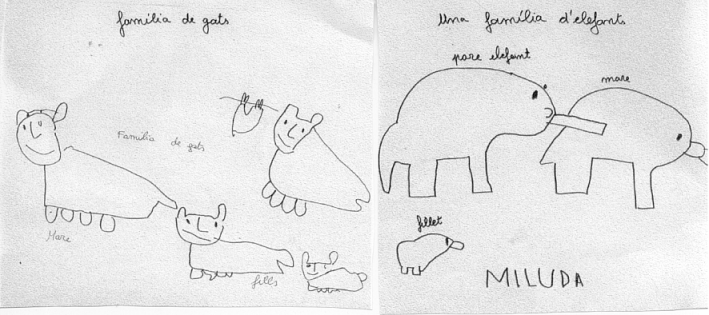 família de gats
Família de gats
Mare
fills
Una família d'elefants
pare elefant
mare
fillet
MILUDA